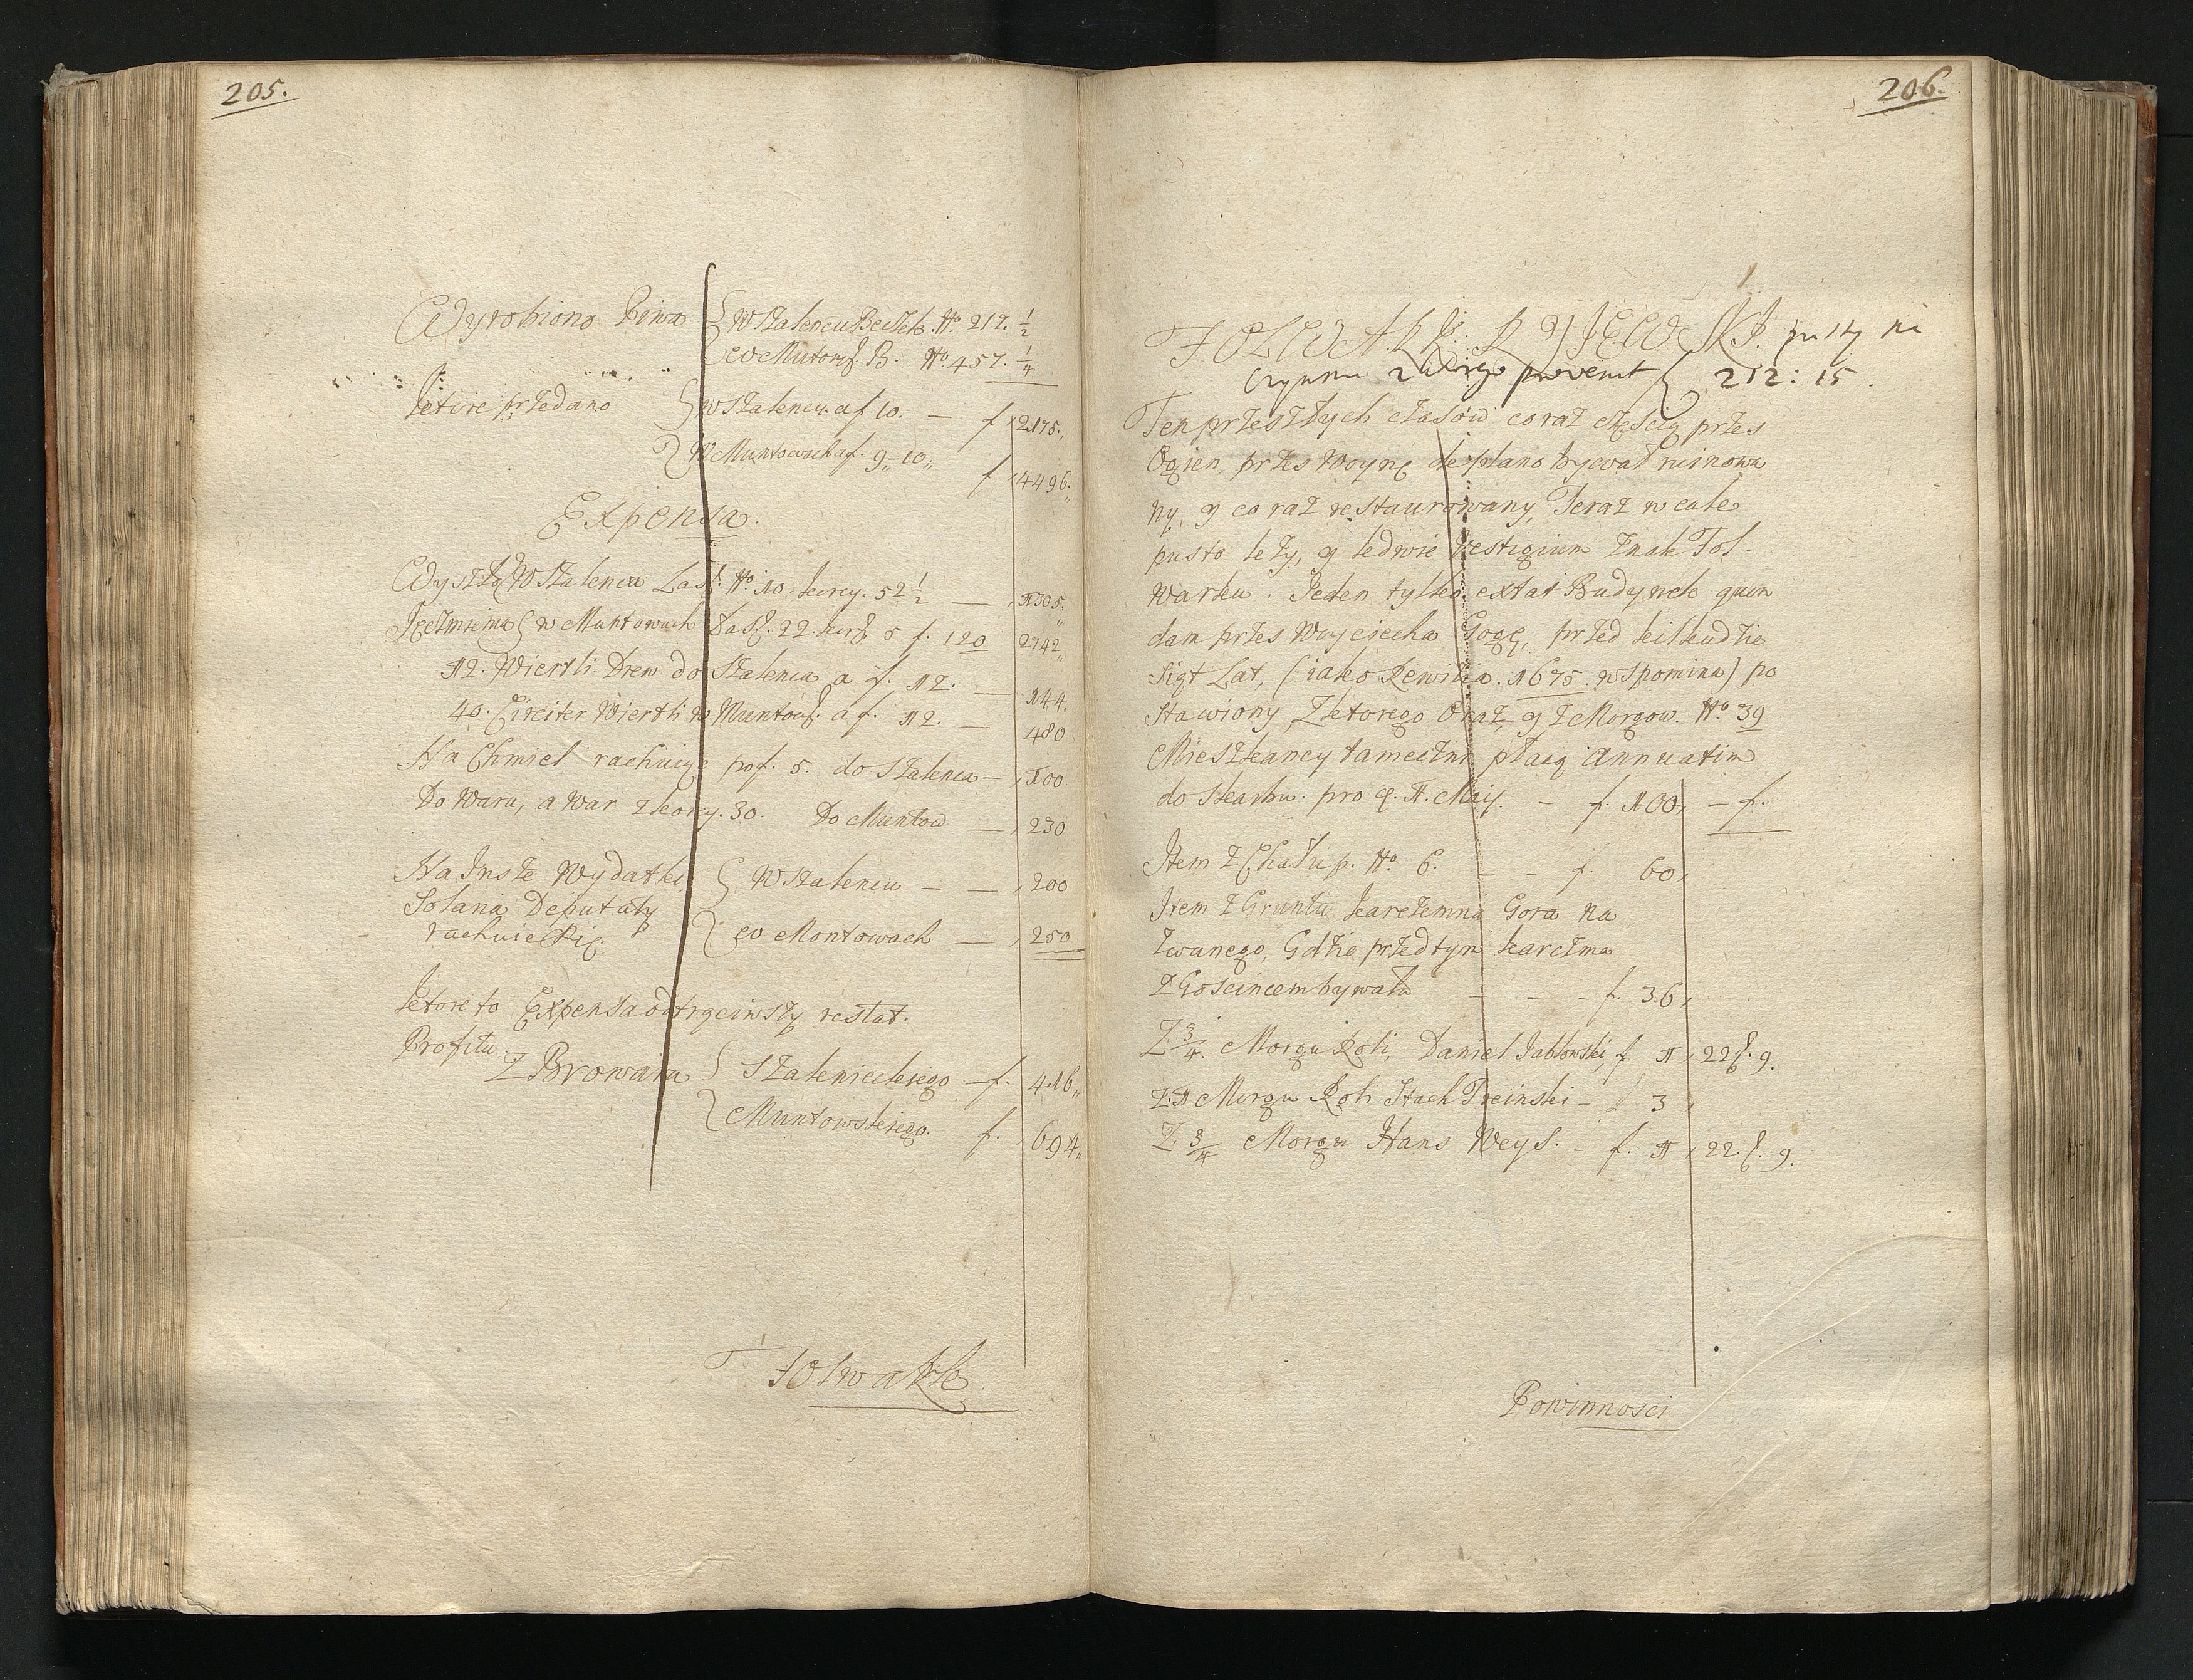 205.
Wyrobiono Piwa { w Sztalencu Beczek. No. 217. 1/2
{ w Muntows. B. No. 457. 1/4
ktore przedano { w Sztalencu. a f 10. — f 2175.
{ w Muntowach a f. 9-10. f 4496.
Expensa.
Wyszło { w Sztalencu Łasz. No. 10. korcy. 52 1/2 — 1305.
Jęczmienia { w Muntowach Łasz. 22. korcy 5 f. 120 2742.
12. Wiertli Drew do Sztalenca a f. 12. — 144.
40. Circiter Wiertli w Muntows. a f. 12. — 480
Na Chmiel rachuiąc po f. 5. do Sztalenca — 100.
Do Waru, a War z korcy. 30. Do Muntow — 230
Na Insze Wydatki { w Sztalencu — — 200
Solaria Deputaty
rachuie się. { w Montowach — 250
ktore to Expensa odtrąciwszy restat.
Profitu
z Browaru { Sztalenieckiego — f. 416.
{ Muntowskiego. f. 694.
Folwark
206.
FOLWARK RYIEWSKI. pusty ni
czynsu z niego provenit { 212: 15.
Ten przeszłych czasow coraz częścią przes
Ogien, przes Woynę de plano bywał ruinowa
ny, y co raz restaurowany, Teraz w cale
pusto leży, y ledwie Vestigium znak Fol-
warku. Jeden tylko extat Budynek quon
dam przes Woyciecha Gogę, przed kilkudzie
siąt Lat, (iako Rewizia. 1675. wspomina) po
stawiony, z ktorego Oraz y z Morgow. No. 39
Mieszkancy tameczni płacą annuatim
do skarbu. pro q. 1. Maij. - f. 100, - f.
Item z Chałup. No. 6. - - f. 60,
Item z Gruntu karczemna Gora na
zwanego, Gdzie przedtym karczma
z Goscincem bywała - - - f. 36,
Z 3/4. Morgu Roli, Daniel Jabłonski, f 1, 22 ſ. 9.
z. 1 Morgu Roli Stach Treinski - f 3,
Z. 3/4 Morgu Hans Weys. - f. 1, 22. ſ. 9.
Powinnosci